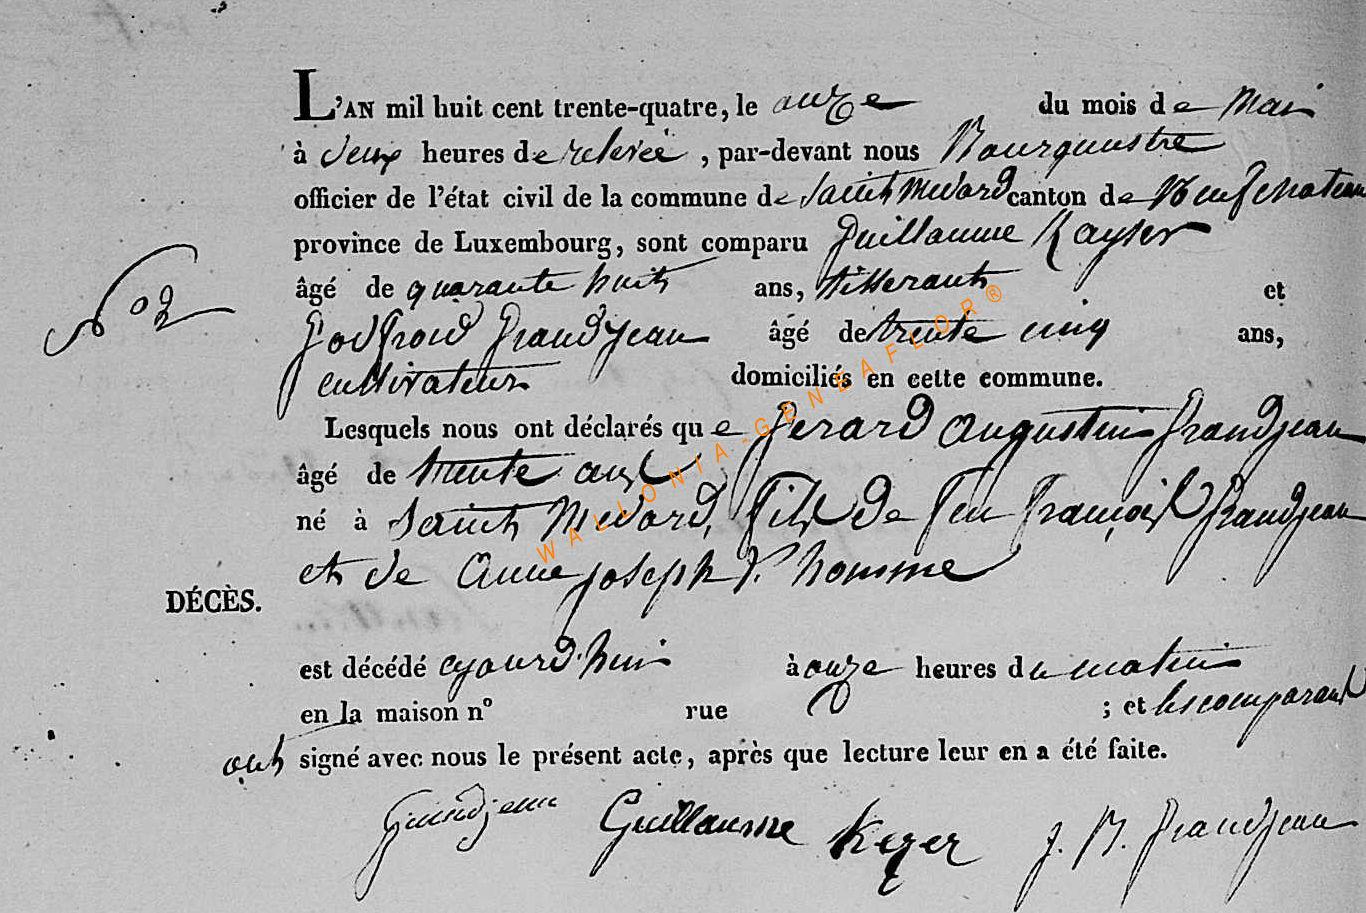 L'AN mil huit cent trente-quatre, le onze du mois de Mai
à deux heures de relevée, par-devant nous Bourguestre
officier de l'état civil de la commune de Saint Medard canton de Neufchateau
province de Luxembourg, sont comparu Guillaume Kayser
âgé de quarante huit ans, tisserant et
Godfroid Grandjean âgé de trente cinq ans,
cultivateur domiciliés en cette commune.
Lesquels nous ont déclarés que Gerard Augustin Grandjean
âgé de trente ans
né à Saint Medard, fils de feu François Grandjean
et de Anne joseph L'homme
DÉCÈS.
est décédé ajourd'hui à onze heures du matin
en la maison n° rue ; et les comparant
ont signé avec nous le présent acte, après que lecture leur en a été faite.
Grandjean Guillaume Keyer J. B. Grandjean
N° 2
WALLONIA-GENEAFLOR®